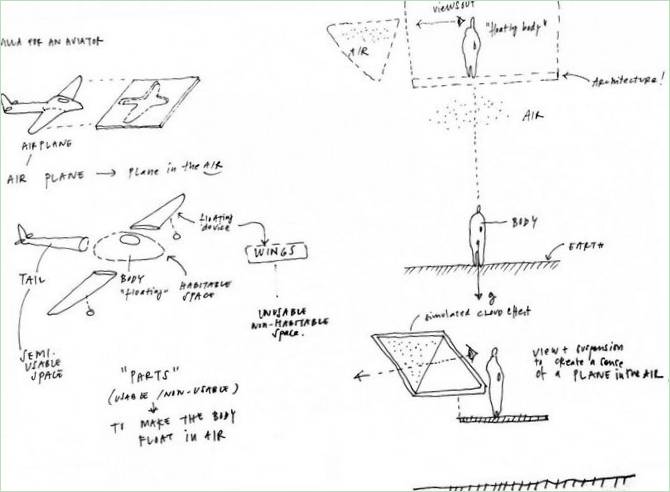 VILLA FOR AN AVIATOR
AIRPLANE
AIR PLANE → Plane in the AIR
floating
device
WINGS
TAIL
BODY
"floating"
HABITABLE
SPACE
UNUSABLE
NON-HABITABLE
SPACE.
SEMI-
USABLE
SPACE
"PARTS"
(USABLE / NON-USABLE)
TO MAKE THE BODY
FLOAT IN AIR
views out
"floating body"
AIR
ARCHITECTURE!
AIR
BODY
EARTH
g
simulated cloud effect
view + suspension
to create a sense
of a PLANE in the AIR